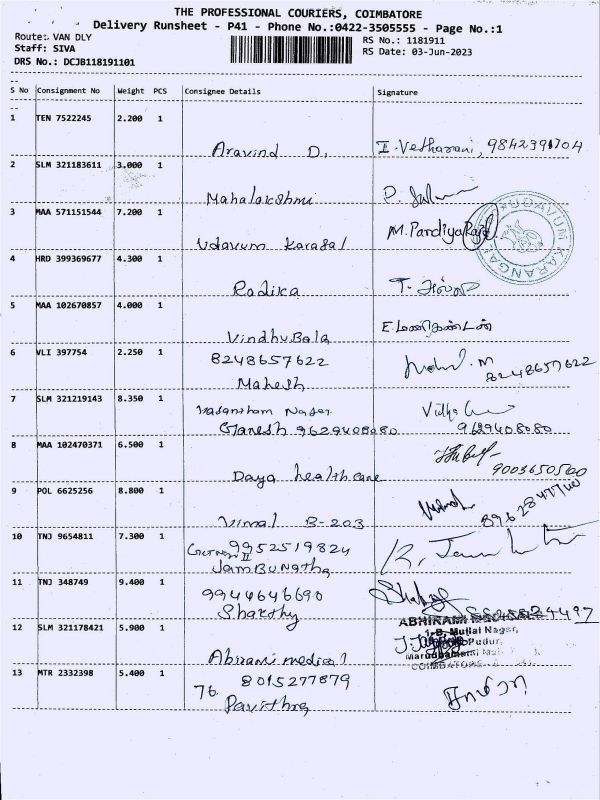 THE PROFESSIONAL COURIERS, COIMBATORE
Delivery Runsheet - P41 - Phone No.:0422-3505555 - Page No.:1
Route: VAN DLY
RS No.: 1181911
Staff: SIVA
RS Date: 03-Jun-2023
DRS No.: DCJB118191101
S No Consignment No Weight PCS Consignee Details Signature
1 TEN 7522245 2.200 1
Aravind D. I. Vetharani, 9842391704
2 SLM 321183611 3.000 1
Mahalakshmi
3 MAA 571151544 7.200 1
Udavum Karagal M. Pandiya Raja
UDAVUM KARANGAL
4 HRD 399369677 4.300 1
Radika
5 MAA 102670857 4.000 1
Vindhu Bala E. மணிகண்டன்
6 VLI 397754 2.250 1
8248657622
Mahesh 8248657622
7 SLM 321219143 8.350 1
Vasantham Nagar
Ganesh 9629408080 9629408080
8 MAA 102470371 6.500 1
Daya health care 9003650560
9 POL 6625256 8.800 1
Vimal B-203
10 TNJ 9654811 7.300 1
9952519824
Jambunatha
11 TNJ 348749 9.400 1
9944646690
Sharthy
12 SLM 321178421 5.900 1
ABHIRAMI
1-B, Mullai Nagar,
Pudur,
Marudhamalai
COIMBATORE
Abirami medical
13 MTR 2332398 5.400 1
76. 8015277879
Pavithra